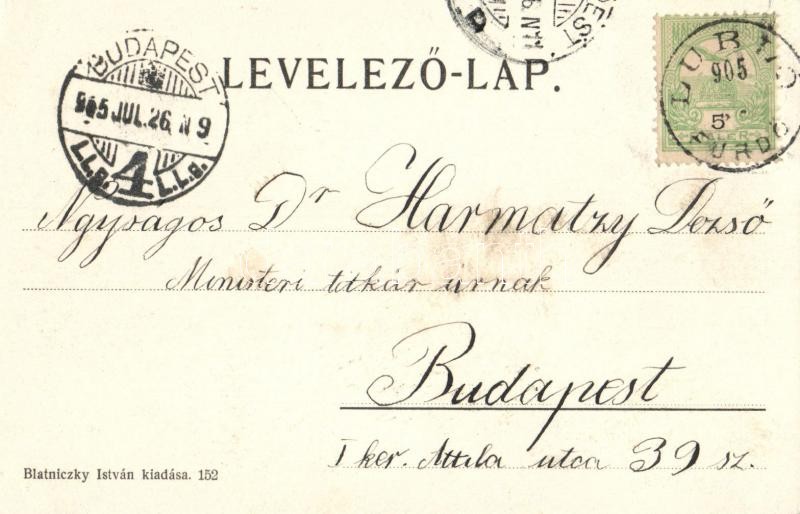 BUDAPEST
905 JUL. 26. N 9
4
LEVELEZŐ-LAP.
6. N 11
LUB
905
FÜRDŐ
5
Ngyságos Dr Harmatzy Dezső
Ministeri titkár úrnak
Budapest
I ker. Attila utca 39 sz.
Blatniczky István kiadása. 152